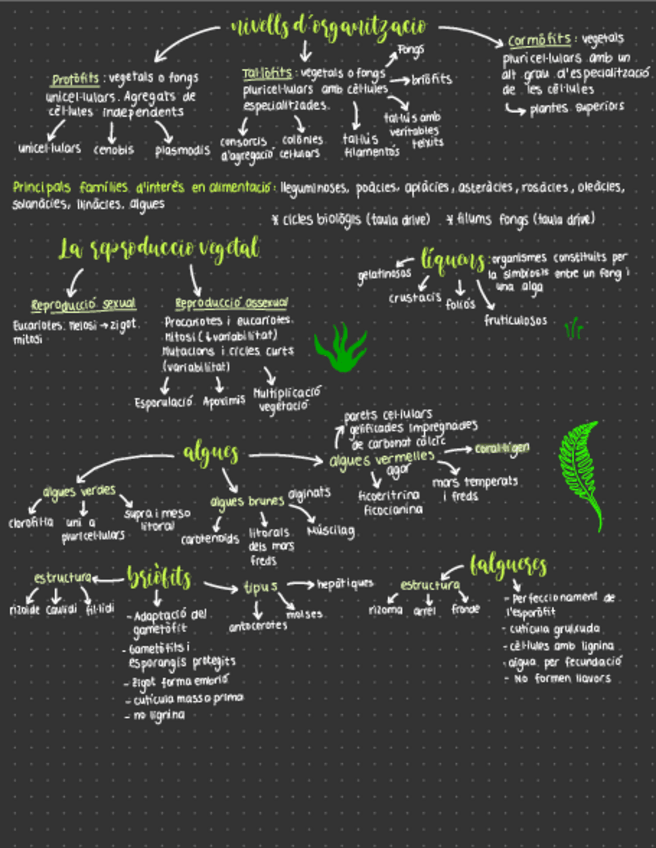 nivells d'organització
Protòfits: vegetals o fongs
unicel·lulars. Agregats de
cèl·lules independents
unicel·lulars cenobis plasmodis
Tal·lòfits: vegetals o fongs
pluricel·lulars amb cèl·lules
especialitzades.
Fongs
briòfits
consorcis
d'agregació
colònies
cel·lulars
tal·lus
filamentós
tal·lus amb
veritables
teixits
Cormòfits: vegetals
pluricel·lulars amb un
alt grau d'especialització
de les cèl·lules
plantes superiors
Principals famílies d'interès en alimentació: lleguminoses, poàcies, apiàcies, asteràcies, rosàcies, oleàcies,
solanàcies, linàcies, algues
* cicles biològis (taula drive) * fílums fongs (taula drive)
La reproducció vegetal
Reproducció sexual
Eucariotes: meiosi → zigot.
mitosi
Reproducció assexual
Procariotes i eucariotes.
Mitosi (↓variabilitat)
Mutacions i cicles curts
(variabilitat)
Esporulació Apoximis
Multiplicació
vegetació
líquens: organismes constituits per
la simbiosis entre un fong i
una alga
gelatinosos
crustacis
foliós
fruticulosos
algues
algues verdes
clorofil·la
uni a
pluricel·lulars
supra i meso
litoral
algues brunes
alginats
carotenoids
litorals
dels mars
freds
Múscilag
parets cel·lulars
gelificades impregnades
de carbonat càlcic
algues vermelles
coral·lígen
agar
ficoeritrina
ficocianina
mars temperats
i freds
briòfits
estructura
rizoide caulidi fil·lidi
- Adaptació del
gametòfit
- Gametòfits i
esporangis protegits
- Zigot forma embrió
- cutícula massa prima
- no lignina
tipus
hepàtiques
molses
antocerotes
falgueres
estructura
rizoma arrel fronde
- Perfeccionament de
l'esporòfit
- cutícula gruixuda
- cèl·lules amb lignina
- aigua per fecundació
- No formen llavors